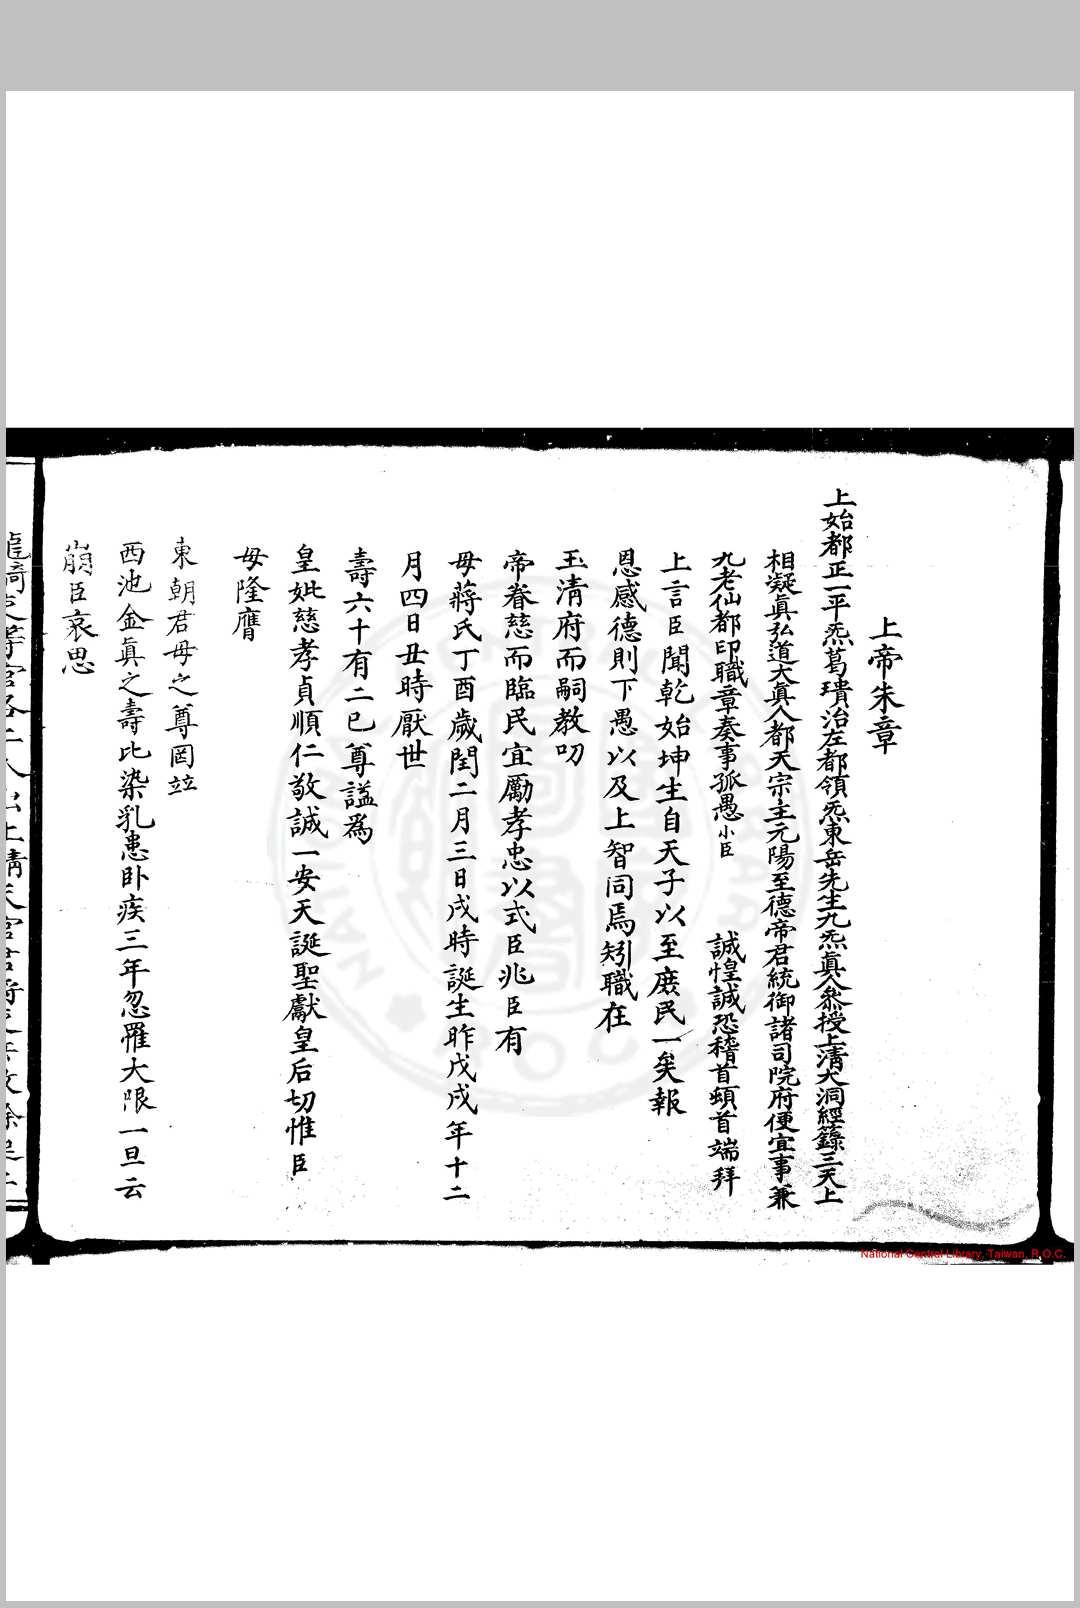 上帝朱章
上始都正一平炁葛璝治左都領炁東岳先生九炁眞人叅授上淸大洞經籙三天上
相凝眞弘道大眞人都天宗主元陽至德帝君統御諸司院府便宜事兼
九老仙都印職章奏事孤愚小臣 誠惶誠恐稽首頓首端拜
上言臣聞乾始坤生自天子以至庶民一矣報
恩感德則下愚以及上智同焉矧職在
玉淸府而嗣教叨
帝眷慈而臨民宜勵孝忠以式臣兆臣有
母蔣氏丁酉歲閏二月三日戌時誕生昨戊戌年十二
月四日丑時厭世
壽六十有二已尊謚爲
皇妣慈孝貞順仁敬誠一安天誕聖獻皇后切惟臣
母隆膺
東朝君母之尊罔竝
西池金眞之壽比染乳患卧疾三年忽罹大限一旦云
崩臣哀思
National Central Library, Taiwan, R.O.C.